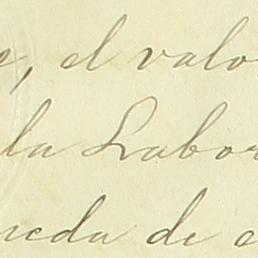 e, el valo
la Labor
neda de e